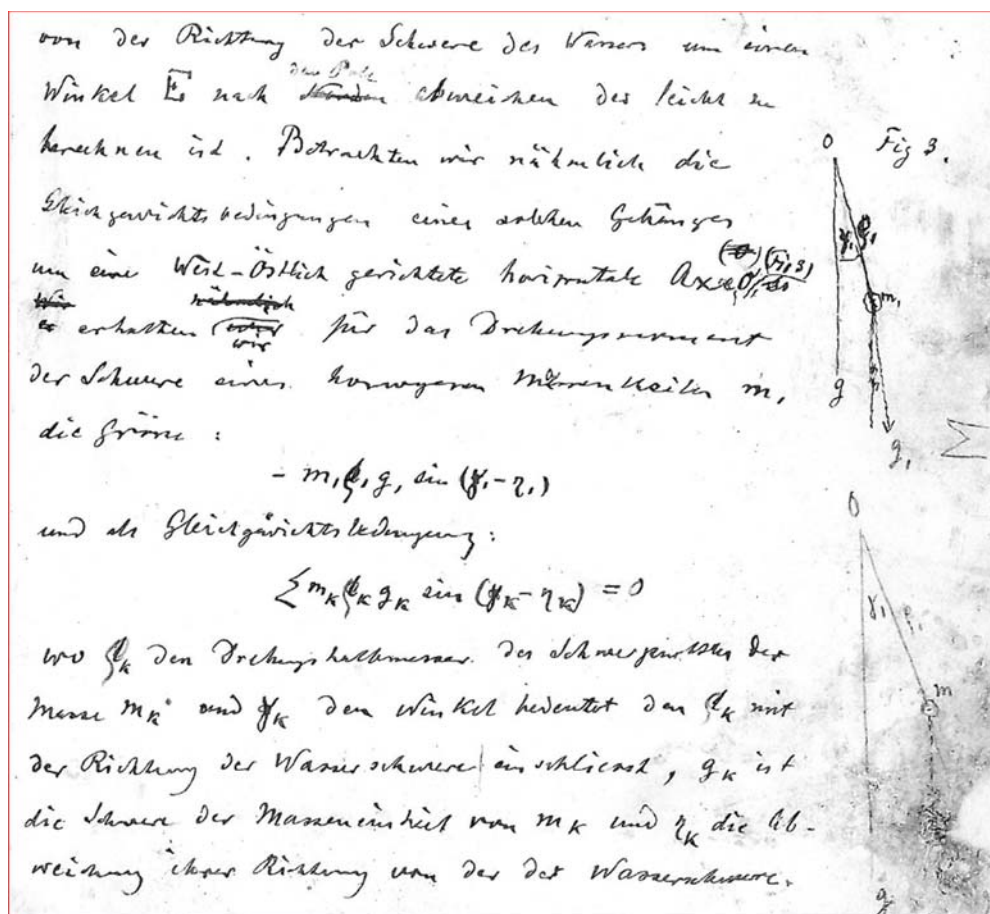 von der Richtung der Schwere des Wassers um einen
den Pole
Winkel E nach Norden abweichen der leicht zu
berechnen ist. Betrachten wir nähmlich die
Gleichgewichtsbedingungen eines solchen Gehänges
(Fig 3)
um eine West-Östlich gerichtete horizontale Axe O,
wir nähmlich
erhalten wir für das Drehungsmoment
der Schwere eines homogenen Massentheiles m,
die Grösse:
- m₁ρ₁g₁ sin (γ₁-η₁)
und als Gleichgewichtsbedingung:
Σ mκρκgκ sin (γκ-ηκ) = 0
wo ρκ den Drehungshalbmesser des Schwerpunktes der
Masse mκ und γκ den Winkel bedeutet den ρκ mit
der Richtung der Wasserschwere einschliesst, gκ ist
die Schwere der Masseneinheit von mκ und ηκ die Ab-
weichung ihrer Richtung von der der Wasserschwere.
Fig 3.
O
γ₁ ρ₁
m₁
g
g₁
O
γ₁ ρ₁
m
g